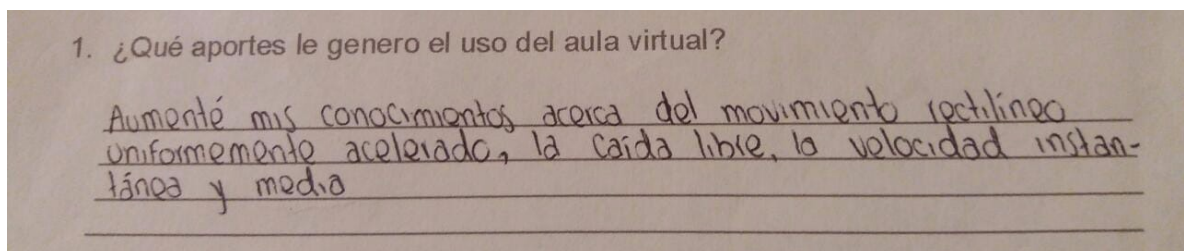 1. ¿Qué aportes le genero el uso del aula virtual?
Aumenté mis conocimientos acerca del movimiento rectilíneo
uniformemente acelerado, la caída libre, la velocidad instan-
tánea y media